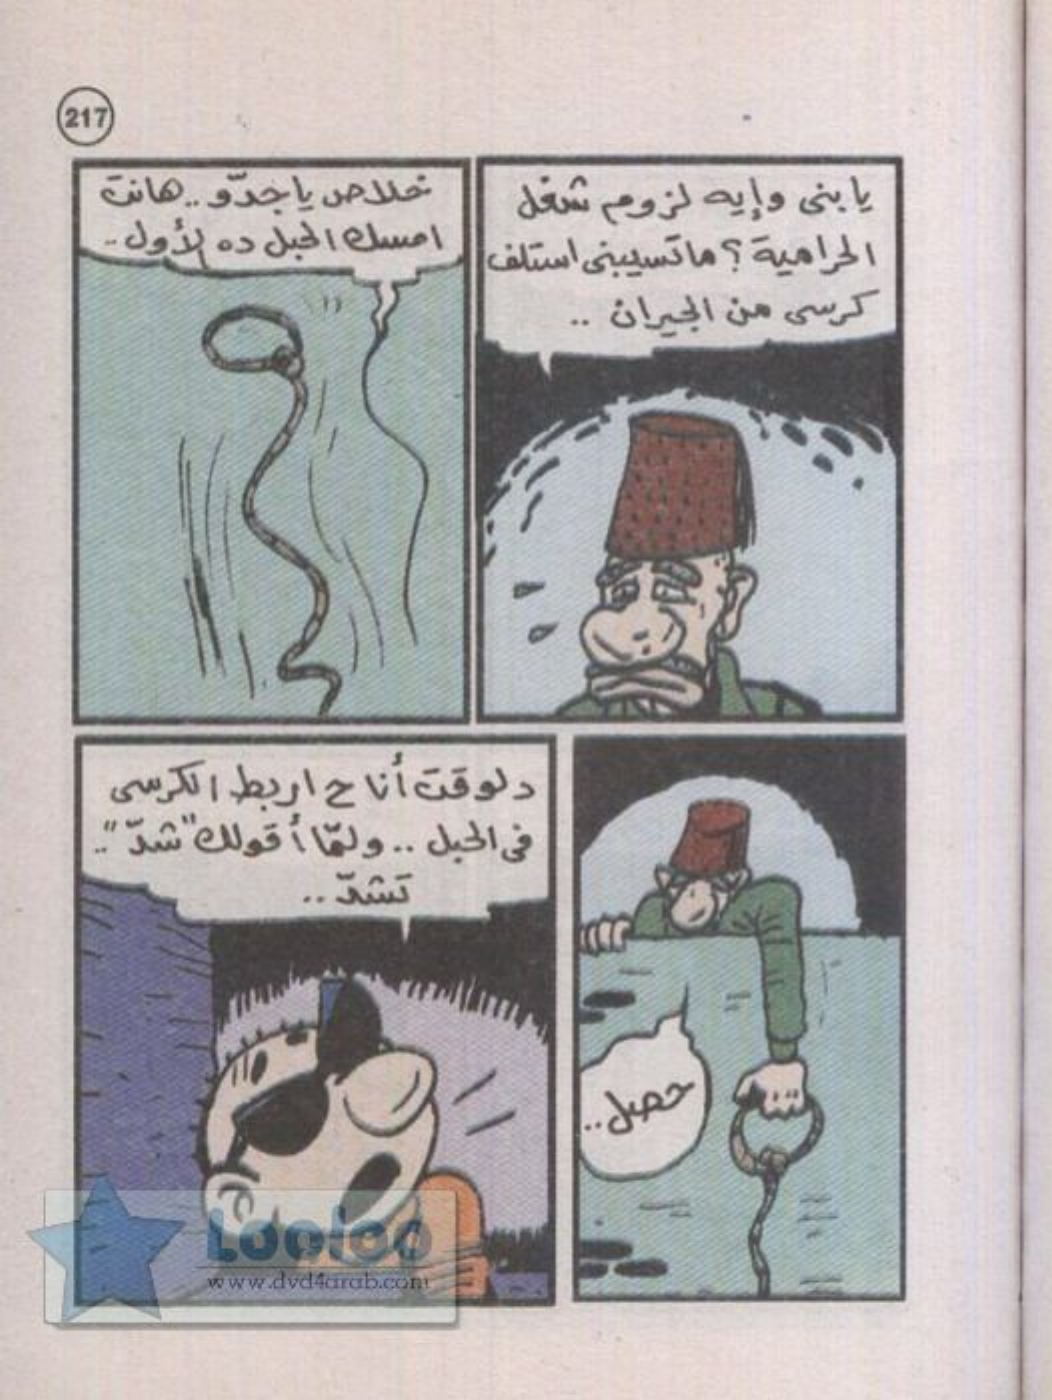 217
يا بنى وإيه لزوم شغل
الحرامية؟ ما تسيبنى استلف
كرسى من الجيران ..
خلاص يا جدّو .. هانت
امسك الحبل ده الأول ..
حصل ..
دلوقت أنا ح اربط الكرسى
فى الحبل .. ولمّا أقولك "شدّ" ..
تشدّ ..
Looloo
www.dvd4arab.com